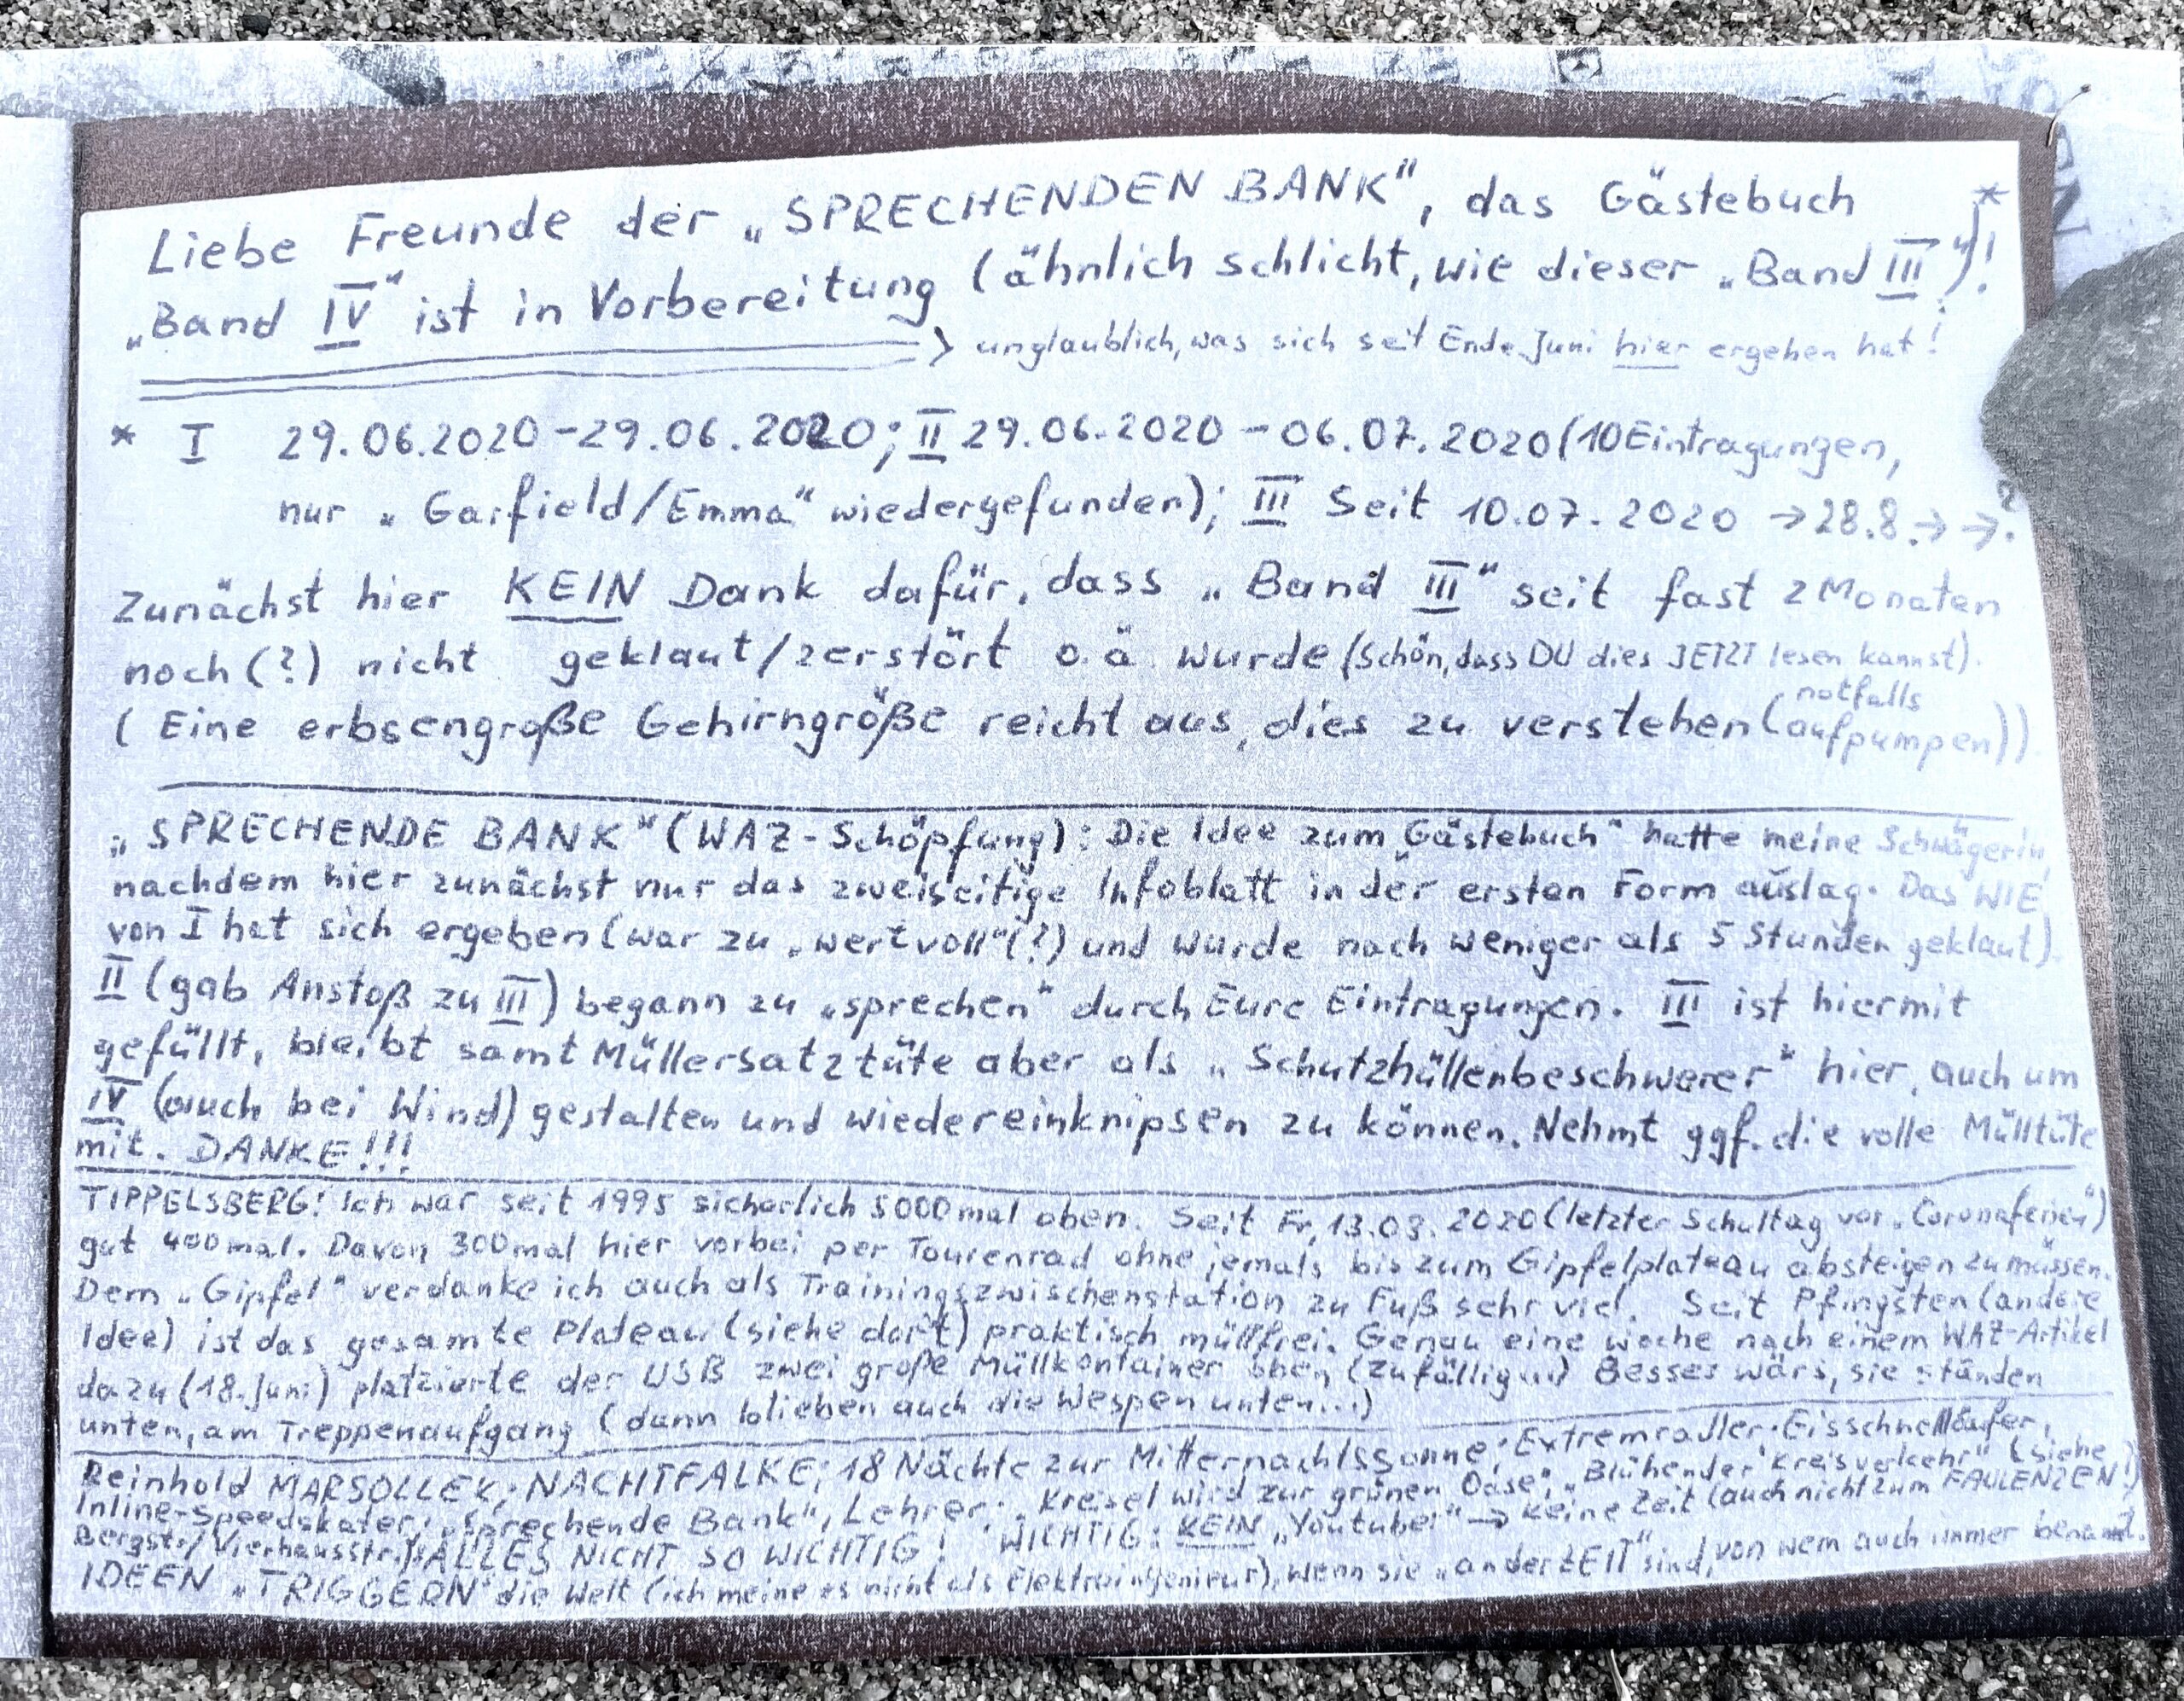 Liebe Freunde der „SPRECHENDEN BANK", das Gästebuch *
„Band IV" ist in Vorbereitung (ähnlich schlicht, wie dieser „Band III")!
> unglaublich, was sich seit Ende Juni hier ergeben hat!
* I 29.06.2020-29.06.2020; II 29.06.2020 - 06.07.2020 (10 Eintragungen,
nur „Garfield/Emma" wiedergefunden); III Seit 10.07.2020 → 28.8. → → ?
Zunächst hier KEIN Dank dafür, dass „Band III" seit fast 2 Monaten
noch (?) nicht geklaut/zerstört o.ä. wurde (Schön, dass DU dies JETZT lesen kannst).
notfalls
(Eine erbsengroße Gehirngröße reicht aus, dies zu verstehen (aufpumpen))
„SPRECHENDE BANK" (WAZ-Schöpfung): Die Idee zum „Gästebuch" hatte meine Schwägerin,
nachdem hier zunächst nur das zweiseitige Infoblatt in der ersten Form auslag. Das WIE
von I hat sich ergeben (war zu „wertvoll"(?) und wurde nach weniger als 5 Stunden geklaut).
II (gab Anstoß zu III) begann zu „sprechen" durch Eure Eintragungen. III ist hiermit
gefüllt, bleibt samt Müllersatztüte aber als „Schutzhüllenbeschwerer" hier, auch um
IV (auch bei Wind) gestalten und wiedereinknipsen zu können. Nehmt ggf. die volle Mülltüte
mit. DANKE!!!
TIPPELSBERG! Ich war seit 1995 sicherlich 5000mal oben. Seit Fr, 13.03.2020 (letzter Schultag vor „Coronaferien")
gut 400mal. Davon 300mal hier vorbei per Tourenrad ohne jemals bis zum Gipfelplateau absteigen zu müssen.
Dem „Gipfel" verdanke ich auch als Trainingszwischenstation zu Fuß sehr viel. Seit Pfingsten (andere
Idee) ist das gesamte Plateau (siehe dort) praktisch müllfrei. Genau eine Woche nach einem WAZ-Artikel
dazu (18. Juni) platzierte der USB zwei große Müllkontainer oben (zufällig...) Besser wärs, sie ständen
unten, am Treppenaufgang (dann blieben auch die Wespen unten...)
Reinhold MARSOLLEK; NACHTFALKE; 18 Nächte zur Mitternachtssonne; Extremradler; Eisschnellläufer,
Inline-Speedskater; „Sprechende Bank", Lehrer; „Kreisel wird zur grünen Oase", „Blühender Kreisverkehr" (siehe
Bergstr/Vierhausstr.) ALLES NICHT SO WICHTIG! WICHTIG: KEIN „Youtuber" → keine Zeit (auch nicht zum FAULENZEN!)
IDEEN „TRIGGERN" die Welt (ich meine es nicht als Elektroingenieur), wenn sie „an der ZEIT" sind, von wem auch immer benannt.